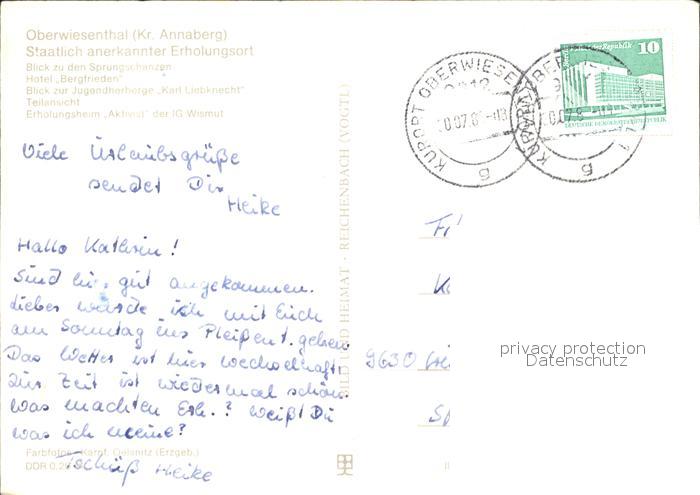 Oberwiesenthal (Kr. Annaberg)
Staatlich anerkannter Erholungsort
Blick zu den Sprungschanzen
Hotel „Bergfrieden"
Blick zur Jugendherberge „Karl Liebknecht"
Teilansicht
Erholungsheim „Aktivist" der IG Wismut
Viele Urlaubsgrüße
sendet Dir
Heike
Hallo Kathrin!
Sind hier gut angekommen.
Lieber würde ich mit Euch
am Sonntag ins Pleißent. gehen.
Das Wetter ist hier wechselhaft.
Zur Zeit ist wiedermal schön.
Was machten ? Weißt Du
was ich meine?
Tschüß Heike
Farbfotos: Oelsnitz (Erzgeb.)
DDR 0,20
BILD UND HEIMAT · REICHENBACH (VOGTL)
KURORT OBERWIESEN
10
DEUTSCHE DEMOKRATISCHE REPUBLIK
9630
privacy protection
Datenschutz